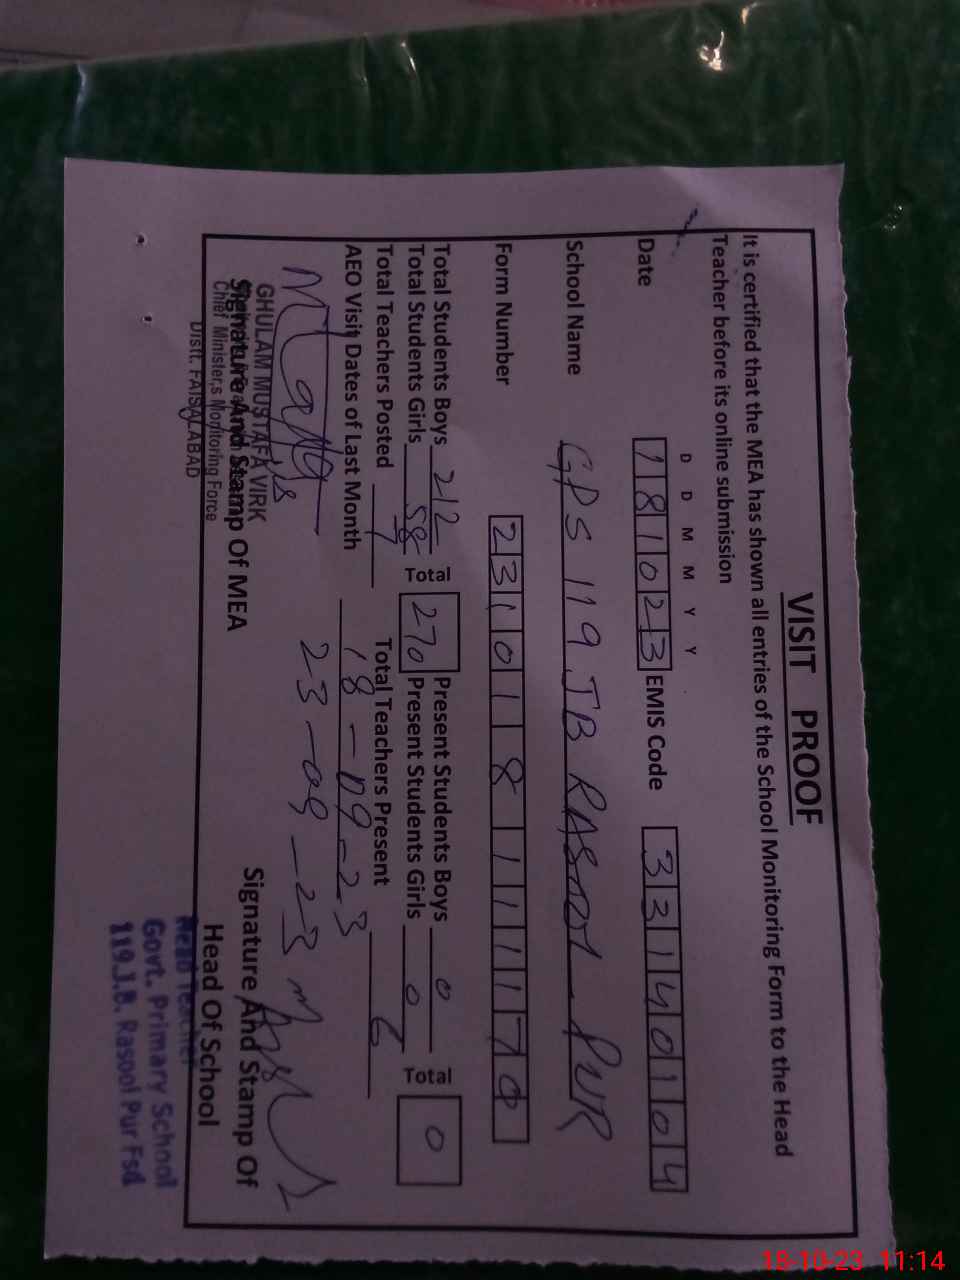 VISIT PROOF
It is certified that the MEA has shown all entries of the School Monitoring Form to the Head
Teacher before its online submission
D D M M Y Y
Date 181023 EMIS Code 33140104
School Name GPS 119 JB RASOOL PUR
Form Number 231018111170
Total Students Boys 212 Present Students Boys 0
Total Students Girls 58 Total 270 Present Students Girls 0 Total 0
Total Teachers Posted 7 Total Teachers Present 6
AEO Visit Dates of Last Month 18-09-23
23-09-23
GHULAM MUSTAFA VIRK
Signature And Stamp Of MEA
Chief Minister,s Monitoring Force
Distt. FAISALABAD
Signature And Stamp Of
Head Of School
Head Teacher
Govt. Primary School
119.J.B. Rasool Pur Fsd
18-10-23 11:14